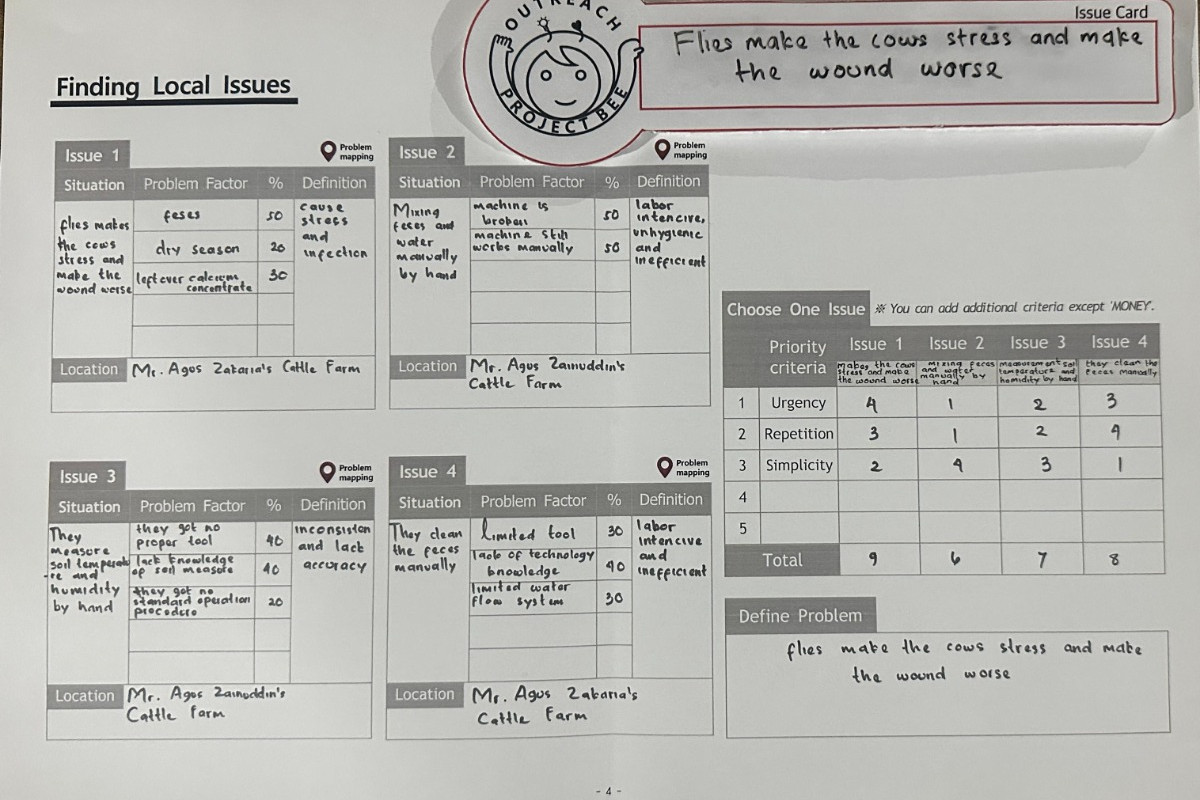 OUTREACH
PROJECT BEE
Issue Card
Flies make the cows stress and make
the wound worse
Finding Local Issues
Issue 1
Problem
mapping
Situation Problem Factor % Definition
flies makes
the cows
stress and
make the
wound worse
feses 50
dry season 20
leftover calcium
concentrate 30
cause
stress
and
infection
Location Mr. Agos Zakaria's Cattle Farm
Issue 2
Problem
mapping
Situation Problem Factor % Definition
Mixing
feces and
water
manually
by hand
machine is
broken 50
machine still
works manually 50
labor
intencive,
unhygienic
and
inefficient
Location Mr. Agos Zainuddin's
Cattle Farm
Issue 3
Problem
mapping
Situation Problem Factor % Definition
They
measure
soil temperatu
-re and
humidity
by hand
they got no
proper tool 40
lack knowledge
of soil measure 40
they got no
standard operation
procedure 20
inconsistion
and lack
accuracy
Location Mr. Agos Zainuddin's
Cattle Farm
Issue 4
Problem
mapping
Situation Problem Factor % Definition
They clean
the feces
manually
limited tool 30
lack of technology
knowledge 40
limited water
flow system 30
labor
intencive
and
inefficient
Location Mr. Agos Zakaria's
Cattle Farm
Choose One Issue ※ You can add additional criteria except 'MONEY'.
Priority
criteria
Issue 1 Issue 2 Issue 3 Issue 4
makes the cows
stress and make
the wound worse
mixing feces
and water
manually by
hand
measurement soil
temperature and
humidity by hand
they clean the
feces manually
1 Urgency 4 1 2 3
2 Repetition 3 1 2 4
3 Simplicity 2 4 3 1
4
5
Total 9 6 7 8
Define Problem
flies make the cows stress and make
the wound worse
- 4 -